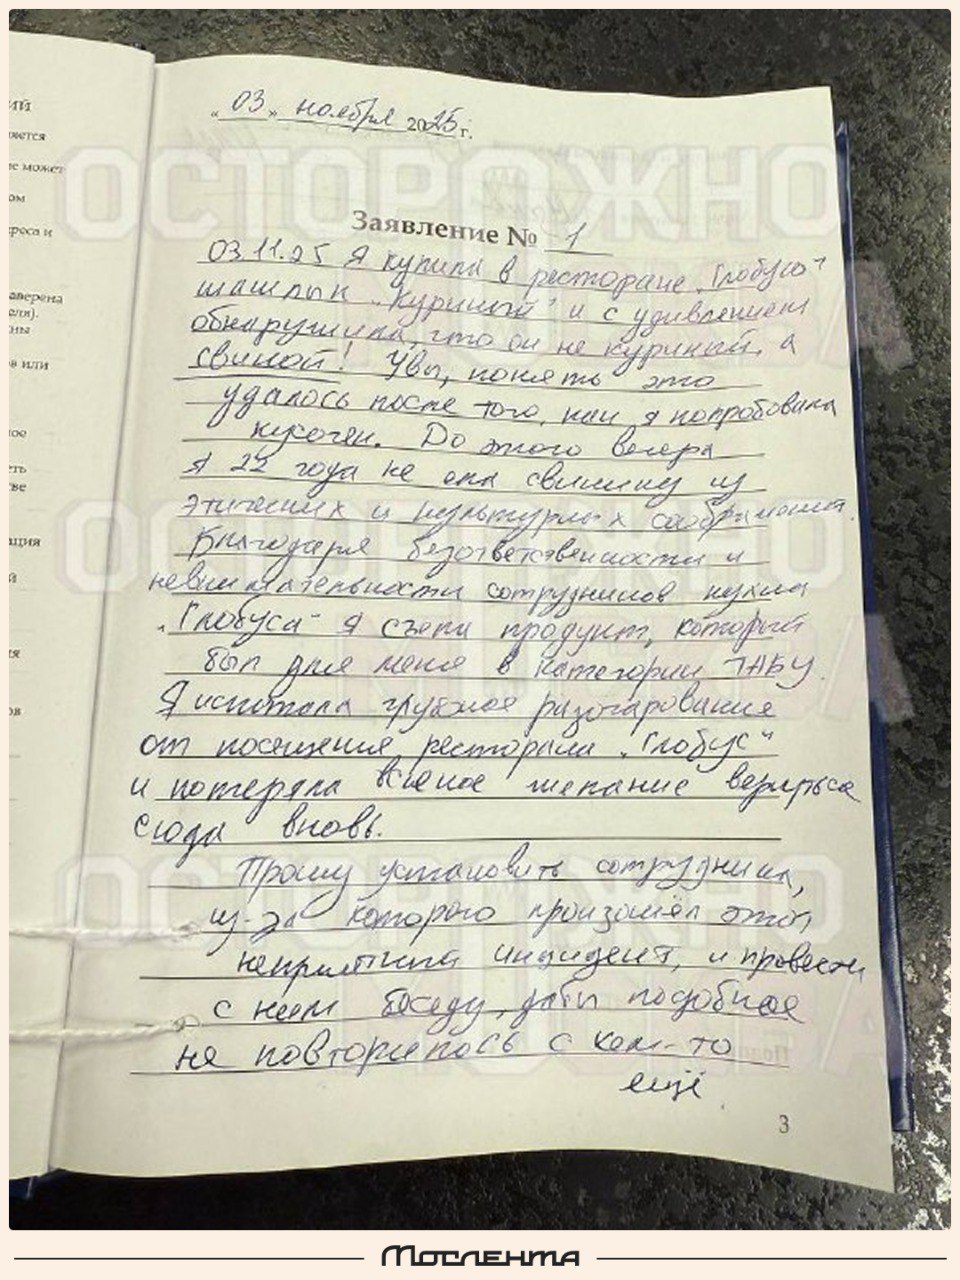 ий
яется
не может
ом
проса и
аверена
еля).
ны
в или
ное
еть
стве
ация
й
я
ов
«03» ноября 2025 г.
ОСТОРОЖНО
МОСКВА
Заявление № 1
03.11.25 Я купила в ресторане „Глобус"
шашлык „Куриный" и с удивлением
обнаружила, что он не куриный, а
свиной! Увы, понять это
удалось после того, как я попробовала
кусочек. До этого вечера
я 22 года не ела свинину из
этических и культурных соображений.
ОСТОРОЖНО
МОСКВА
Благодаря безответственности и
невнимательности сотрудников кухни
„Глобуса" я съела продукт, который
был для меня в категории ТАБУ.
Я испытала глубокое разочарование
от посещения ресторана „Глобус"
и потеряла всякое желание вернуться
сюда вновь.
ОСТОРОЖНО
МОСКВА
Прошу установить сотрудника,
из-за которого произошёл этот
неприятный инцидент, и провести
с ним беседу, дабы подобное
не повторилось с кем-то
ещё.
3
Мослента